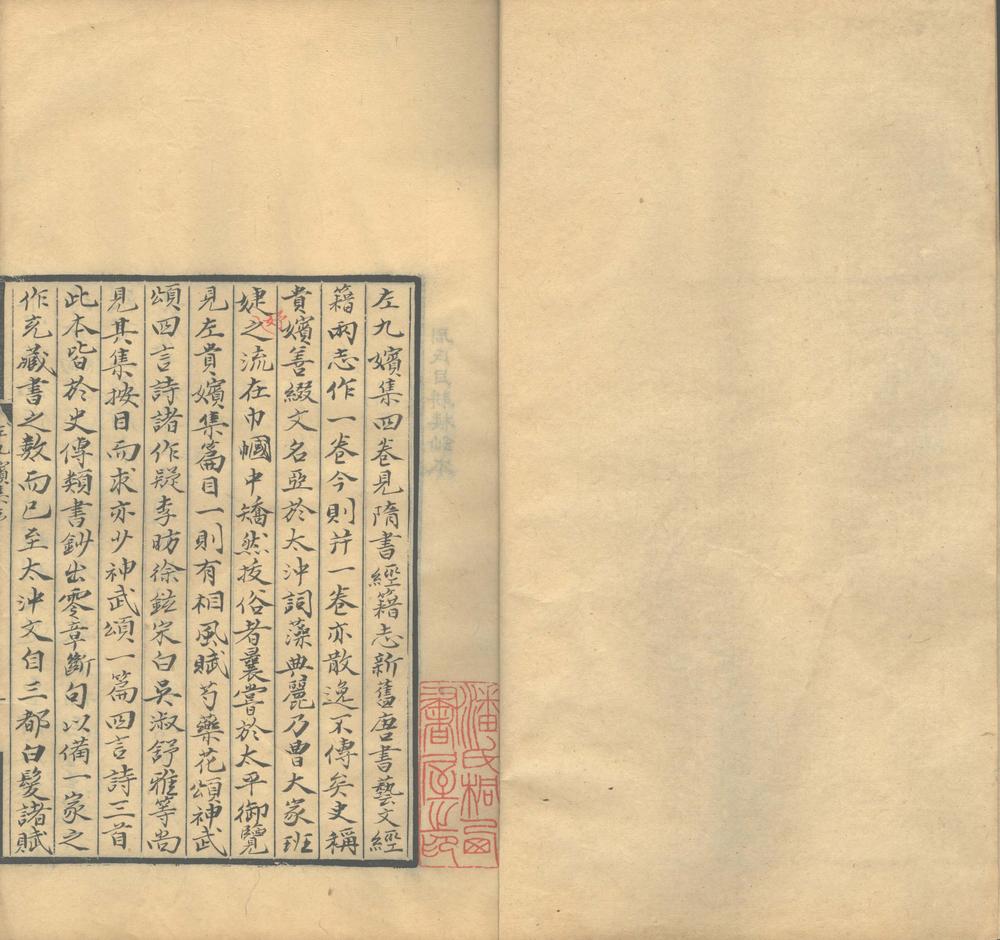 左九嬪集四卷見隋書經籍志新舊唐書藝文經
籍兩志作一卷今則并一卷亦散逸不傳矣史稱
貴嬪善綴文名亞於太沖詞藻典麗乃曹大家班
婕妤之流在巾幗中矯然拔俗者曩嘗於太平御覽
見左貴嬪集篇目一則有相風賦芍藥花頌神武
頌四言詩諸作疑李昉徐鉉宋白吳淑舒雅等尚
見其集按目而求亦少神武頌一篇四言詩三首
此本皆於史傳類書鈔出零章斷句以備一家之
作充藏書之數而已至太沖文自三都白髮諸賦
潘氏桐
書屋之印